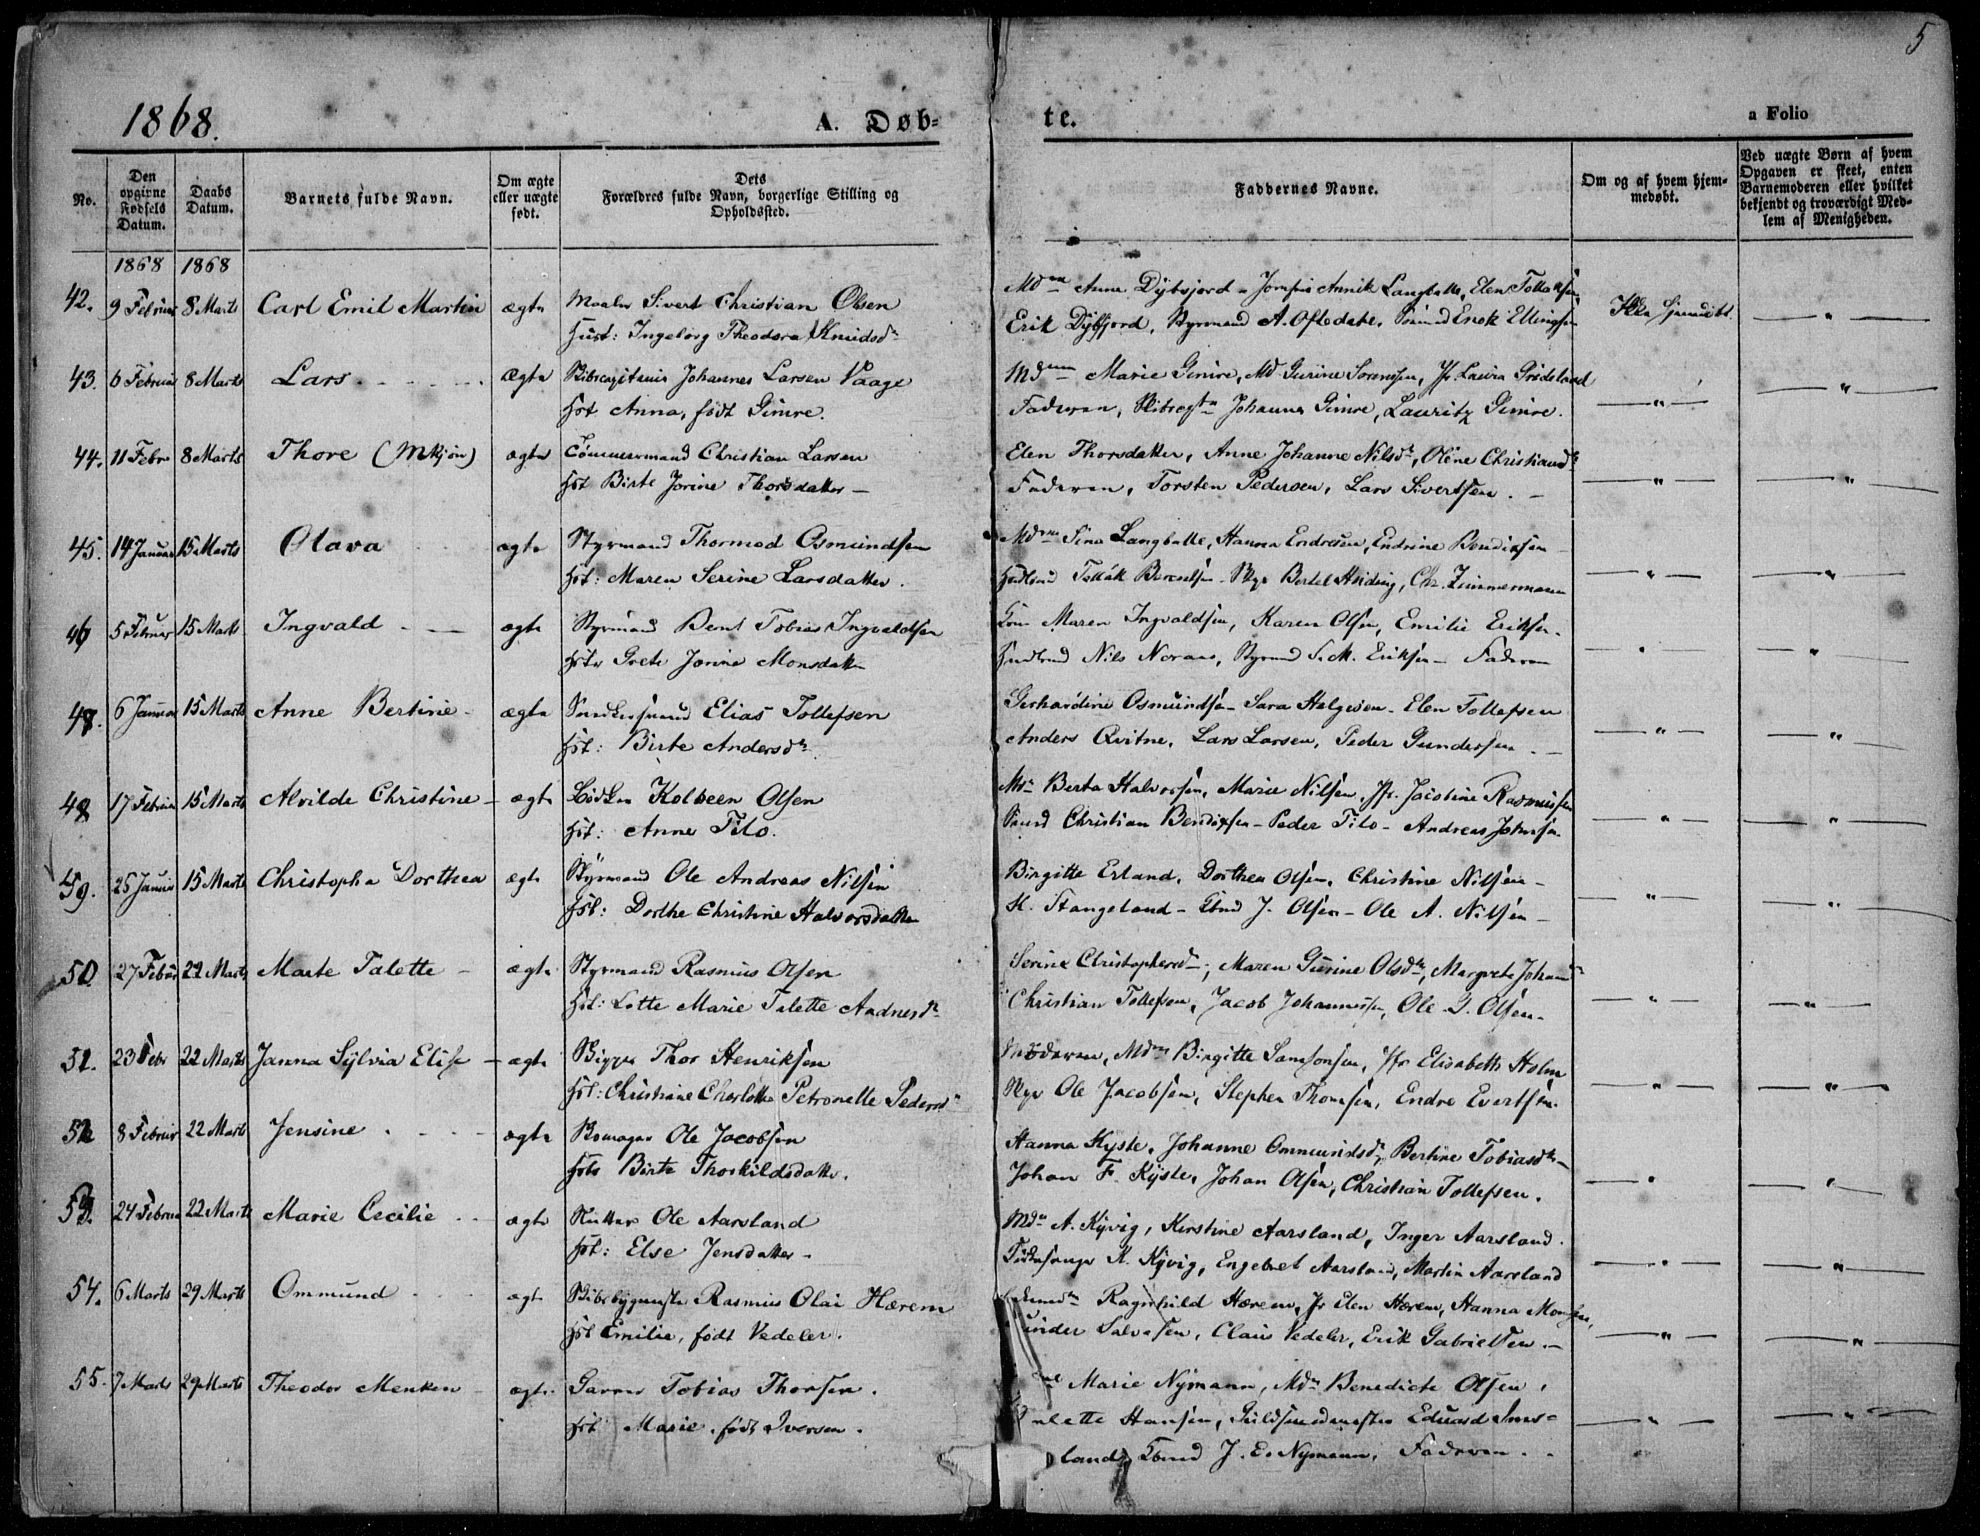 5
1868.
A. Døb-
te.
a Folio
No.
Den opgivne Fødsels Datum.
Daabs Datum.
Barnets fulde Navn.
Om ægte eller uægte født.
Dets Forældres fulde Navn, borgerlige Stilling og Opholdssted.
Faddernes Navne.
Om og af hvem hjemmedøbt.
Ved uægte Børn af hvem Opgaven er skeet, enten Barnemoderen eller hvilket bekjendt og troværdigt Medlem af Menigheden.
1868 1868
42. 9 Februar 8 Marts Carl Emil Martin ægte Maaler Sivert Christian Olsen
Hust: Ingeborg Theodora Knudsd.
Mdm Anne Dybfjord Annik Langballe, Elen
Erik Dybfjord, Styrmand A. Oftedahl, Enok Ellingsen
Ikke hjemmedøbt — " —
43. 6 Februar 8 Marts Lars ægte Skibscapitain Johannes Larsen Vaage
Hst Anna, født Gimre.
Mdm Marie Gimre, Md Gurine Sorensen, Jfr. Laura Grødeland
Faderen, Johannes Gimre, Lauritz Gimre.
— " — — " —
44. 11 Febr 8 Marts Thore (Mkjøn) ægte Tømmermand Christian Larsen
Hst Birte Jorine Thorsdatter —
Elen Thorsdatter, Anne Johanne Nilsd, Oline Christiansd
Faderen, Torsten Pedersen, Lars Sivertsen. —
— " — — " —
45. 14 Januar 15 Marts Olava ægte Styrmand Thormod Osmundsen
Hst: Maren Serine Larsdatter.
Mdme Sina Langballe, Hanna Endresen, Endrine Bendixsen
Tollak Berentsen Bertel Chr. Zimmermann
— " — — " —
46 5 Februar 15 Marts Ingvald — ægte Styrmand Bent Tobias Ingvaldsen
Hst Grete Jorine Monsdatter
Maren Ingvaldsen, Karen Olsen, Emilie Eriksen.
Nils Eriksen — Faderen
— " — — " —
47. 6 Januar 15 Marts Anne Bertine — ægte Elias Tollefsen
Hst: Birte Andersd
Gerhardine Osmundsen — Sara Helgesen — Elen Tollefsen
Anders Qvitne, Lars Larsen, Peder Gundersen —
— " — — " —
48 17 Februar 15 Marts Alvilde Christine — ægte Bødker Kolbeen Olsen
Hst: Anne Tilo.
Md Berta Halvorsen, Marie Nilsen, Jfr. Jacobine Rasmussen
Christian Bendixsen — Peder Tilo — Andreas Johnsen
— " — — " —
49. 25 Januar 15 Marts Christopha Dorthea ægte Styrmand Ole Andreas Nilsen
Hst: Dorthe Christine Halvorsdatter
Birgitte Erland, Dorthea Olsen, Christine Nilsen —
H. Stangeland — J. Olsen — Ole A. Nilsen —
— " — — " —
50 27 Febuar 22 Marts Marte Talette — ægte Styrmand Rasmus Olsen
Hst: Lotte Marie Talette Andersd
Serine Christophersd, Maren Gurine Olsd, Margrete Johannd
Christian Tollefsen, Jacob Johannessen, Ole G. Olsen —
— " — — " —
51. 23 Febr 22 Marts Janna Sylvia Elise — ægte Rigger Thor Henriksen
Hst: Christiane Charlotte Petronelle Pedersd
Moderen, Mdm Birgitte Samsonsen, Jfr Elisabeth Holm
Ole Jacobsen, Stephen Thomsen, Endre Evertsen
— " — — " —
52 8 Februar 22 Marts Jensine ægte Ole Jacobsen
Hst Birte Thorkildsdatter.
Hanna Kyste, Johanne Ommundsd, Bertine Tobiasd —
Johan F. Kyste, Johan Olsen, Christian Tollefsen.
— " — — " —
53. 24 Februar 22 Marts Marie Cecilie ægte Ole Aarsland
Hst: Else Jensdatter —
Md A. Kyvig, Kirstine Aarsland, Inger Aarsland.
K. Kyvig, Engebret Aarsland, Martin Aarsland
— " — — " —
54. 6 Marts 29 Marts Ommund ægte Skibsbygmester Rasmus Olai Hærem
Hst Emilie, født Vedeler.
Ragnhild Hærem, Jfr Elen Hærem, Hanna
Salvesen, Claus Vedeler, Erik Gabrielsen —
— " — — " —
55. 7 Marts 29 Marts Theodor Menken — ægte Garver Tobias Thorsen.
Hst Marie, født Iversen.
Marie Nymann, Md Benedicte Olsen,
Hansen, Guldsmedmester Eduard Sms-
land, J. E. Nymann, Faderen.
— " — — " —